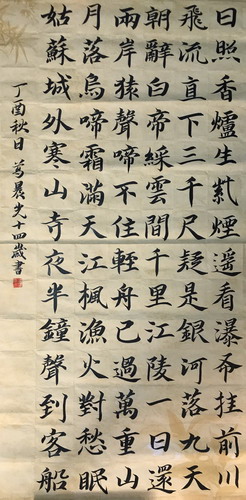 日照香爐生紫煙遙看瀑布挂前川
飛流直下三千尺疑是銀河落九天
朝辭白帝綵雲間千里江陵一日還
兩岸猿聲啼不住輕舟已過萬重山
月落烏啼霜滿天江楓漁火對愁眠
姑蘇城外寒山寺夜半鐘聲到客船
丁酉秋日晨光十四歲書